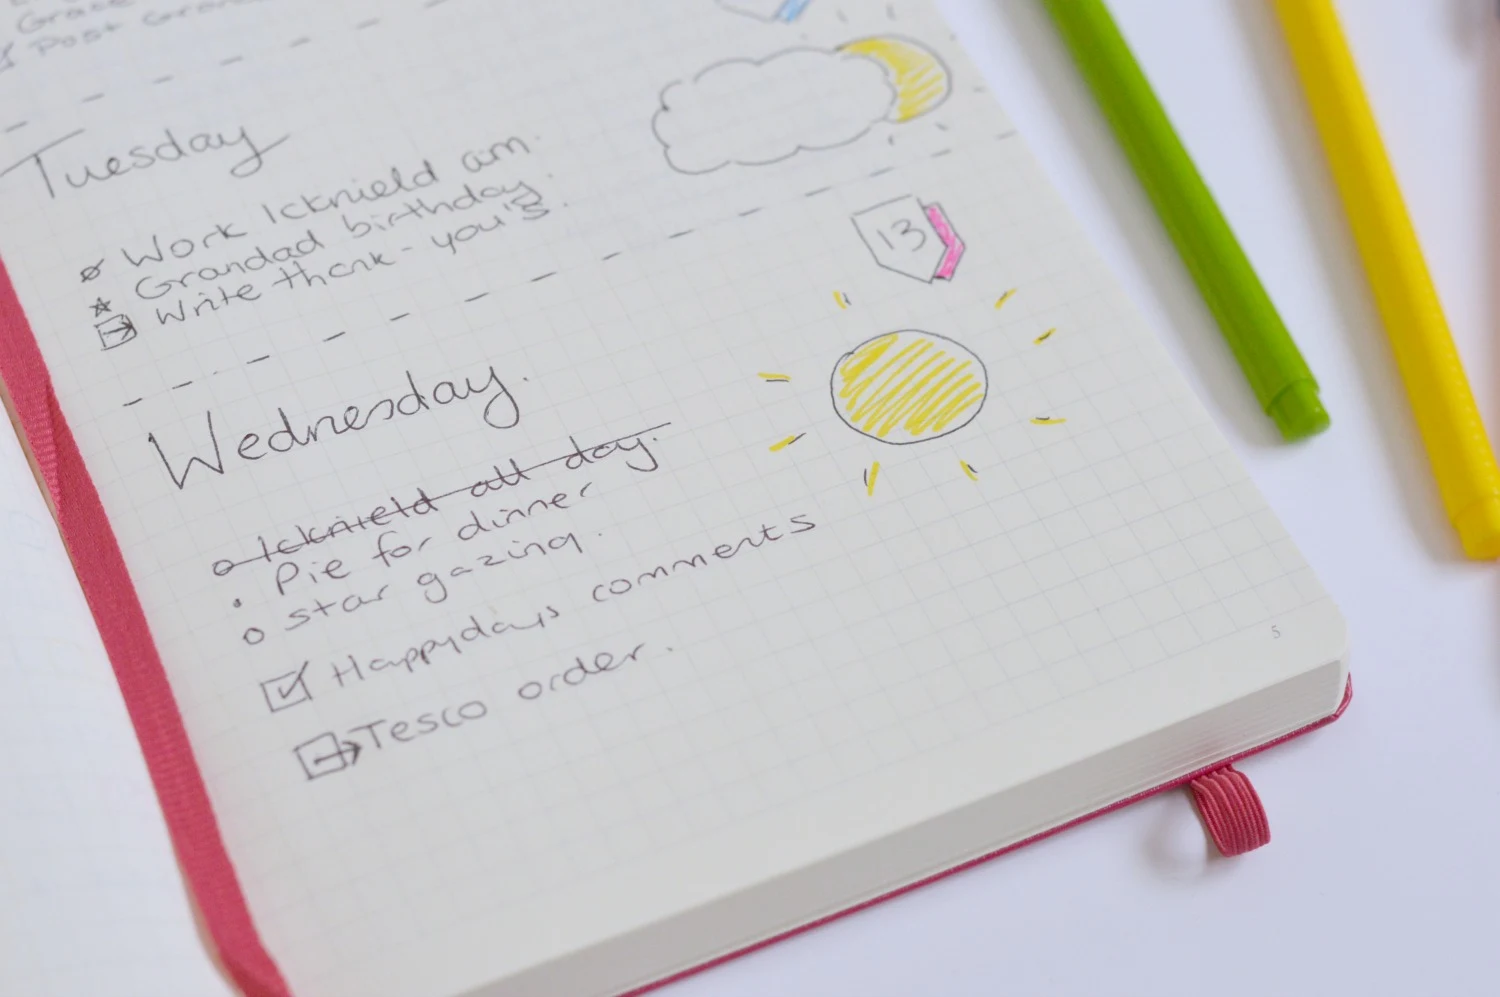 Grace
Post Gran
Tuesday
Work Icknield am.
Grandad birthday.
Write thank-you's.
13
Wednesday.
Icknield all day.
Pie for dinner
star gazing.
Happydays comments
Tesco order.
5